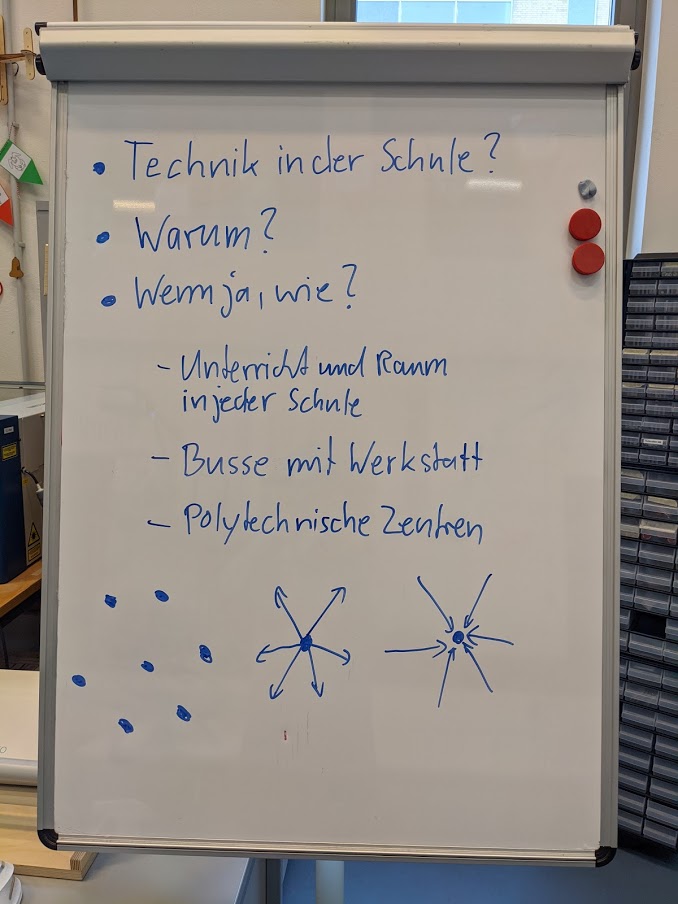 • Technik in der Schule?
• Warum?
• Wenn ja, wie?
- Unterricht und Raum
in jeder Schule
- Busse mit Werkstatt
- Polytechnische Zentren